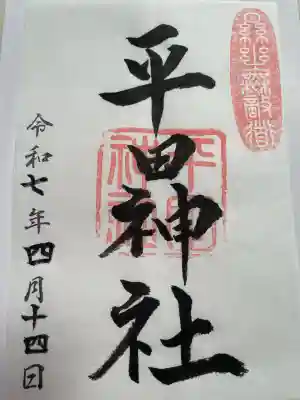 平田神社
令和七年四月十四日
平田神社